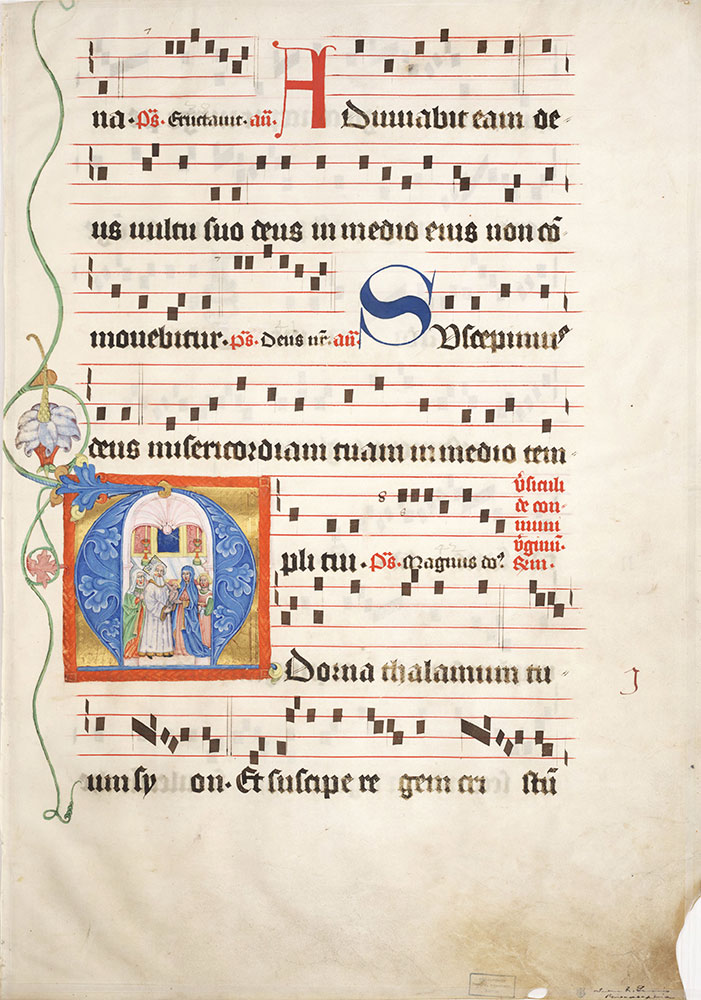 na· ps̄. Eructavit. an̄. Adiuuabit eam de⸗
us uultu suo deus in medio eius non cō
mouebitur· ps̄. Deus nr̄. an̄. Suscepimus
deus misericordiam tuam in medio tem
v̄siculi
de con⸗
muni
v̄ginum
pli tui· ps̄. Magnus do⁹.
Adorna thalamum tu⸗
um sy on· Et suscipe re gem cri stū